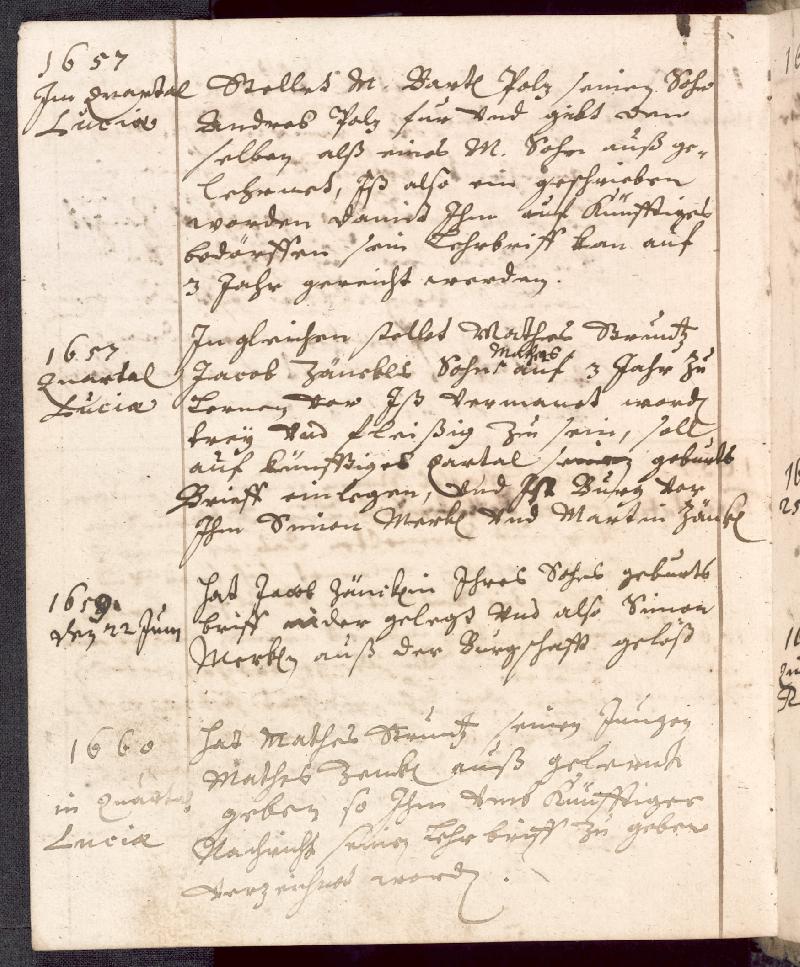 1657
Im Quartal
Lucia
Stellet M. Bartl Polz seinen Sohn
Andreas Polz für vnd gibt den
selben alß eines M. Sohn auß ge-
lehrnet, Ist also ein geschrieben
worden damit Ihm auf Künfftiges
bedörffen sein Lehrbriff kan auf
3 Jahr gereicht werden.
1657
Quartal
Lucia
In gleichen stellet Mathes Strunz
Mathes
Jacob Zänckls Sohn auf 3 Jahr zu
Lernen vor Ist vermanet word
trey vnd fleißig zu sein, soll
auf künfftiges Qartal seinen geburts
Brieff einlegen, vnd Ist Burg vor
Ihm Simon Merkl vnd Martin Zänkl
1659
den 22 Juni
hat Jacob Zänklin Ihres Sohns geburts
briff nider gelegt vnd also Simon
Merkln auß der Burgschafft gelöst
1660
in Quartal
Lucia
hat Mathes Strunz seinen Jungen
Mathes Zenkl auß gelernt
geben so Ihm vmb Künfftiger
Nachricht seinen Lehrbriff zu geben
verzeichnet word.